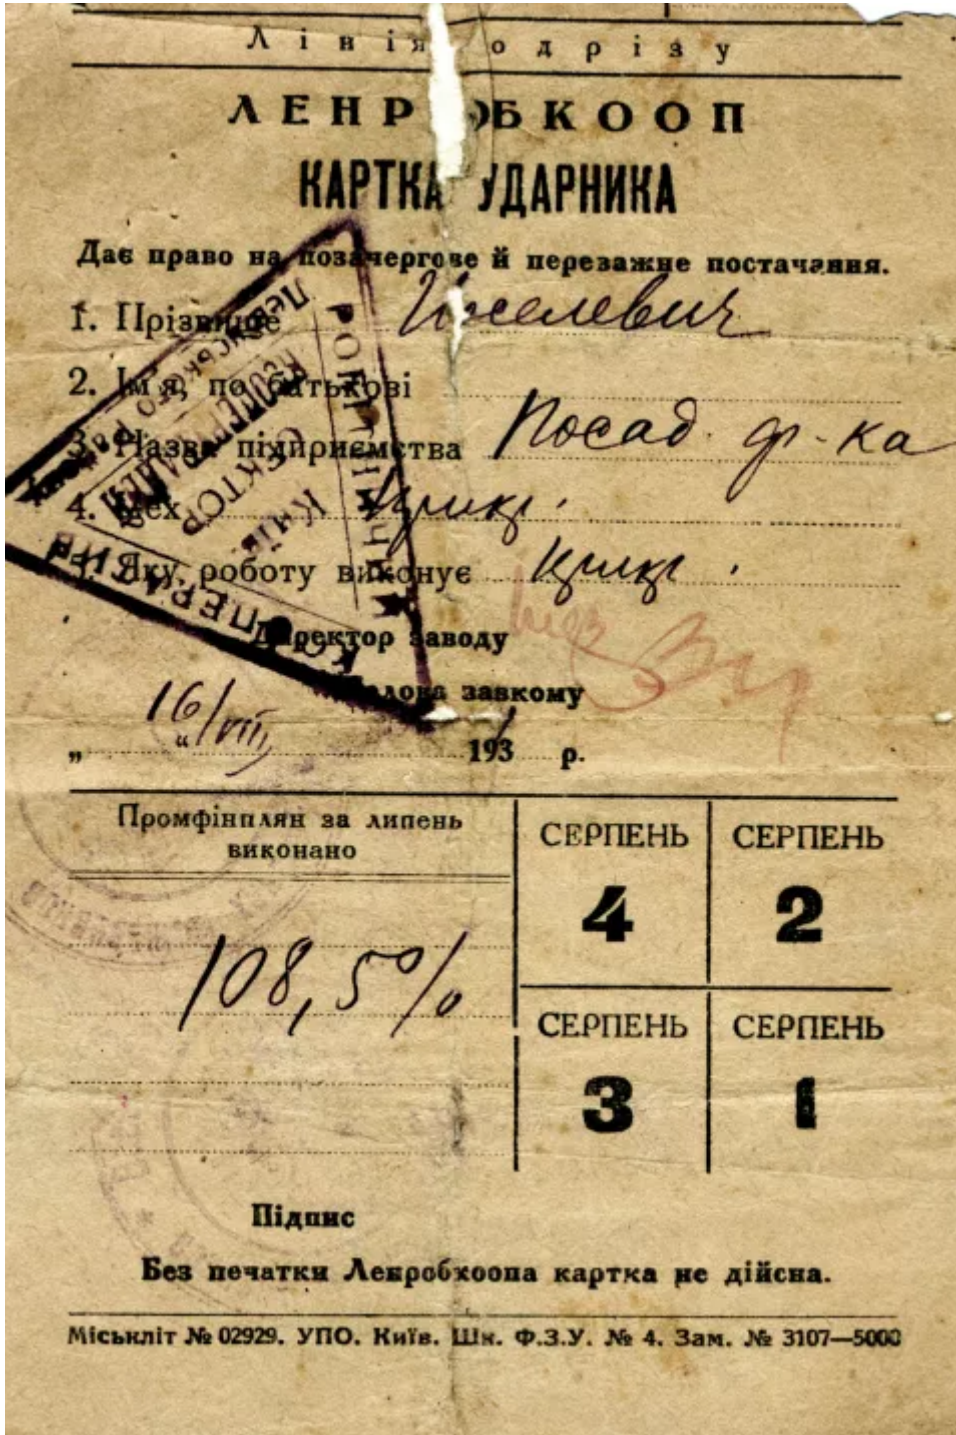 Лінія одрізу
ЛЕНРОБКООП
КАРТКА УДАРНИКА
Дає право на позачергове й переважне постачання.
1. Прізвище Иоселевич
2. Ім'я, по батькові
3. Назва підприємства Посад. ф-ка
4. Цех
5. Яку роботу виконує
Директор заводу
Голова завкому
„ 16/VIII “ 193 р.
Промфінплян за липень
виконано
108,5%
СЕРПЕНЬ
4
СЕРПЕНЬ
2
СЕРПЕНЬ
3
СЕРПЕНЬ
1
Підпис
Без печатки Ленробкоопа картка не дійсна.
Міськліт № 02929. УПО. Київ. Шк. Ф.З.У. № 4. Зам. № 3107—5000
РОБІТНИЧИЙ
КООПЕРАТИВ
СЕКТОР
Київ.